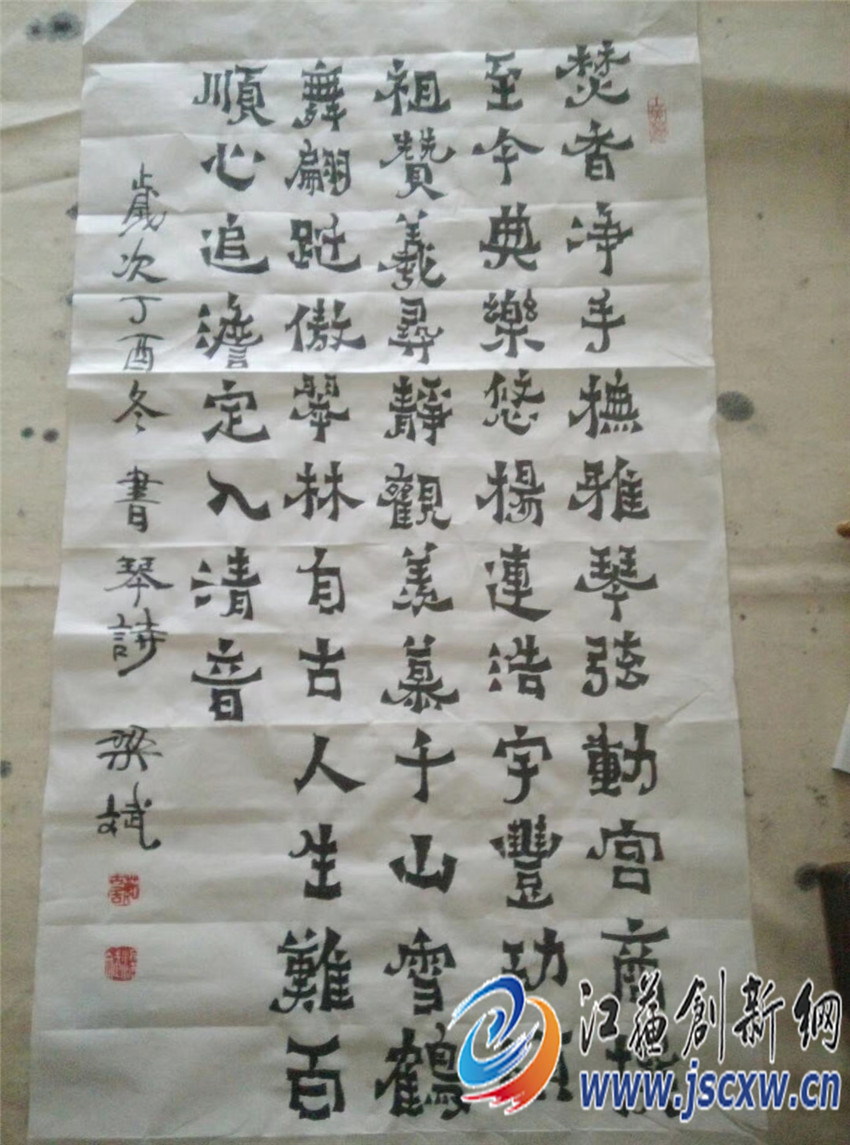 焚香淨手撫雅琴弦動宮商
至今典樂悠揚連浩宇豐功
祖贊羲尋靜觀羨慕千山雪鶴
舞翩跹傲翠林自古人生難百
順心追澹定入清音
歲次丁酉冬書琴詩 梁斌
江蘇創新網
www.jscxw.cn